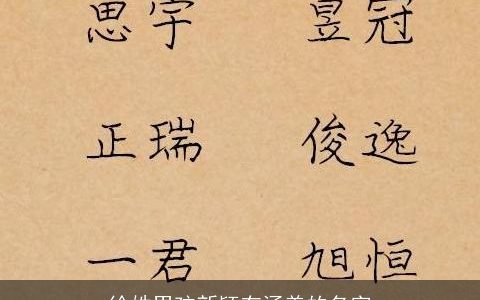 思宇 昱冠
正瑞 俊逸
一君 旭恒
给姓男孩新颖有涵养的名字